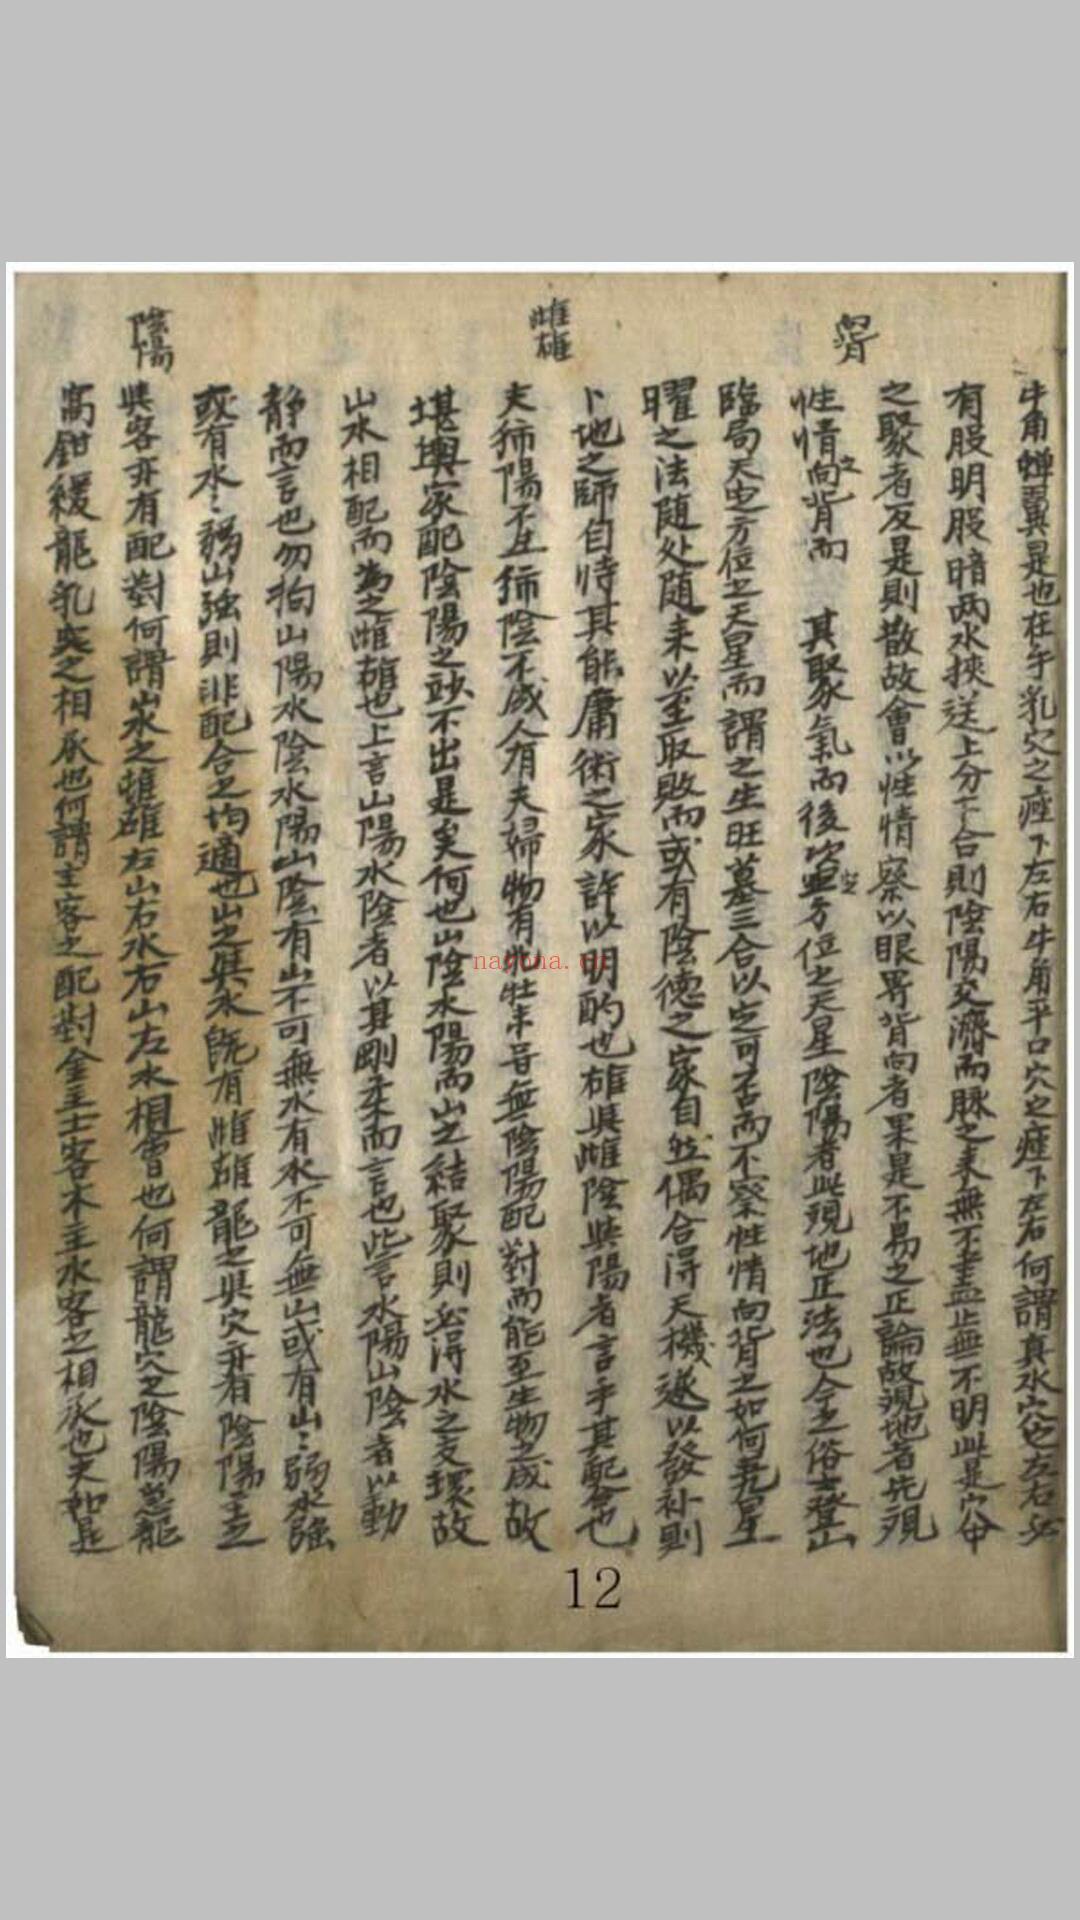 牛角蟬翼是也在乎乳穴之痙下左右牛角平口穴之痙下左右何謂真水穴也左右必
有股明股暗两水挾送上分下合則陰陽交濟而脉之来無不盡止無不明此是穴中
之聚者反是則散故會以性情察以眼界背向者果是不易之正論故覌地者先覌
性情之向背而 其聚氣而後定方位之天星陰陽者此覌地正法也今之俗士登山
臨局天也方位之天星而謂之生旺墓三合以定可否而不察性情向背之如何星
曜之法随处随来以至取敗而或有陰德之家自然偶合得天機遂以發补則
卜地之師自恃其能庸術之家許以明酌也雄與雌陰與陽者言乎其配合也
夫孤陽不生孤陰不成人有夫婦物有牝牡未曾無陰陽配對而能至生物之成故
堪輿家配陰陽之妙不出是矣何也山陰水陽而山之結聚則必得水之灣環故
山水相配而為之雌雄也上言山陽水陰者以其剛柔而言也此言水陽山陰者以動
静而言也勿拘山陽水陰水陽山陰有山不可無水有水不可無山或有山〻弱水強
或有水〻弱山強則非配合之均適也山之與水既有雌雄龍之與穴亦有陰陽主之
與客亦有配對何謂山水之雌雄左山右水右山左水相會也何謂龍穴之陰陽急龍
窩鉗緩龍乳突之相承也何謂主客之配對金主土客木主水客之相承也夫如是
雌雄
陰陽
12